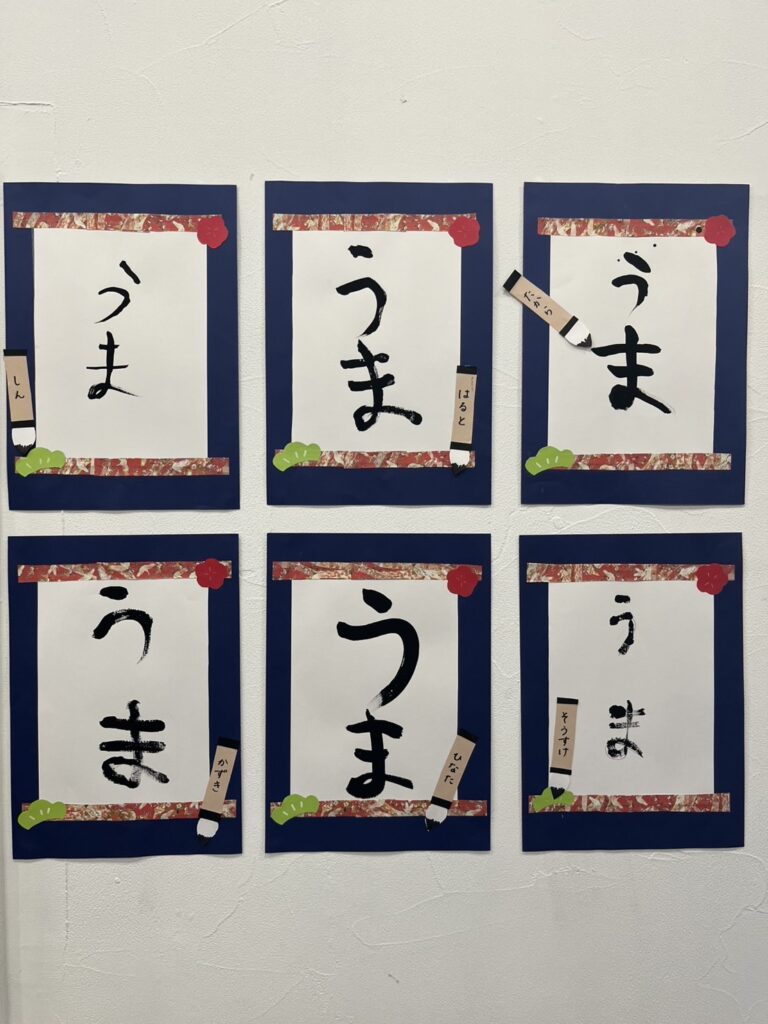 うま
しん
うま
はると
うま
たから
うま
かずき
うま
ひなた
うま
そうすけ